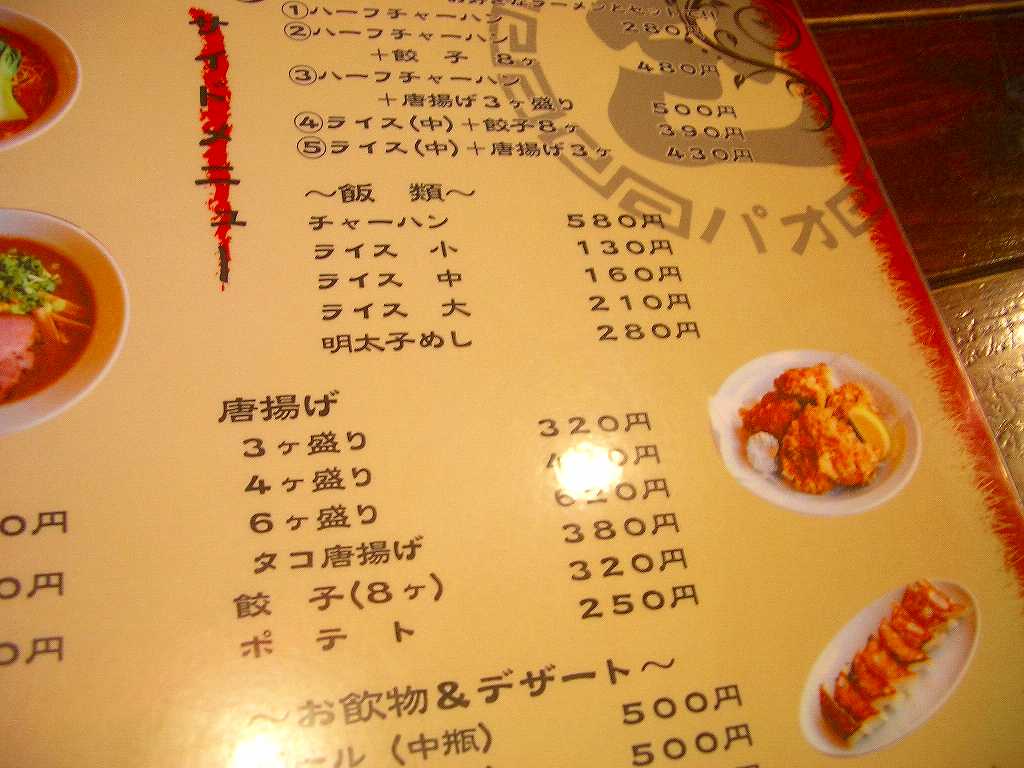 サイドメニュー
①ハーフチャーハン 280円
②ハーフチャーハン
＋餃 子 8ヶ 480円
③ハーフチャーハン
＋唐揚げ3ヶ盛り 500円
④ライス(中)＋餃子8ヶ 390円
⑤ライス(中)＋唐揚げ3ヶ 430円
〜飯 類〜
チャーハン 580円
ライス 小 130円
ライス 中 160円
ライス 大 210円
明太子めし 280円
パオ
唐揚げ
3ヶ盛り 320円
4ヶ盛り 0円
6ヶ盛り 620円
タコ唐揚げ 380円
餃 子(8ヶ) 320円
ポ テ ト 250円
0円
0円
0円
〜お飲物＆デザート〜
ール (中瓶) 500円
500円